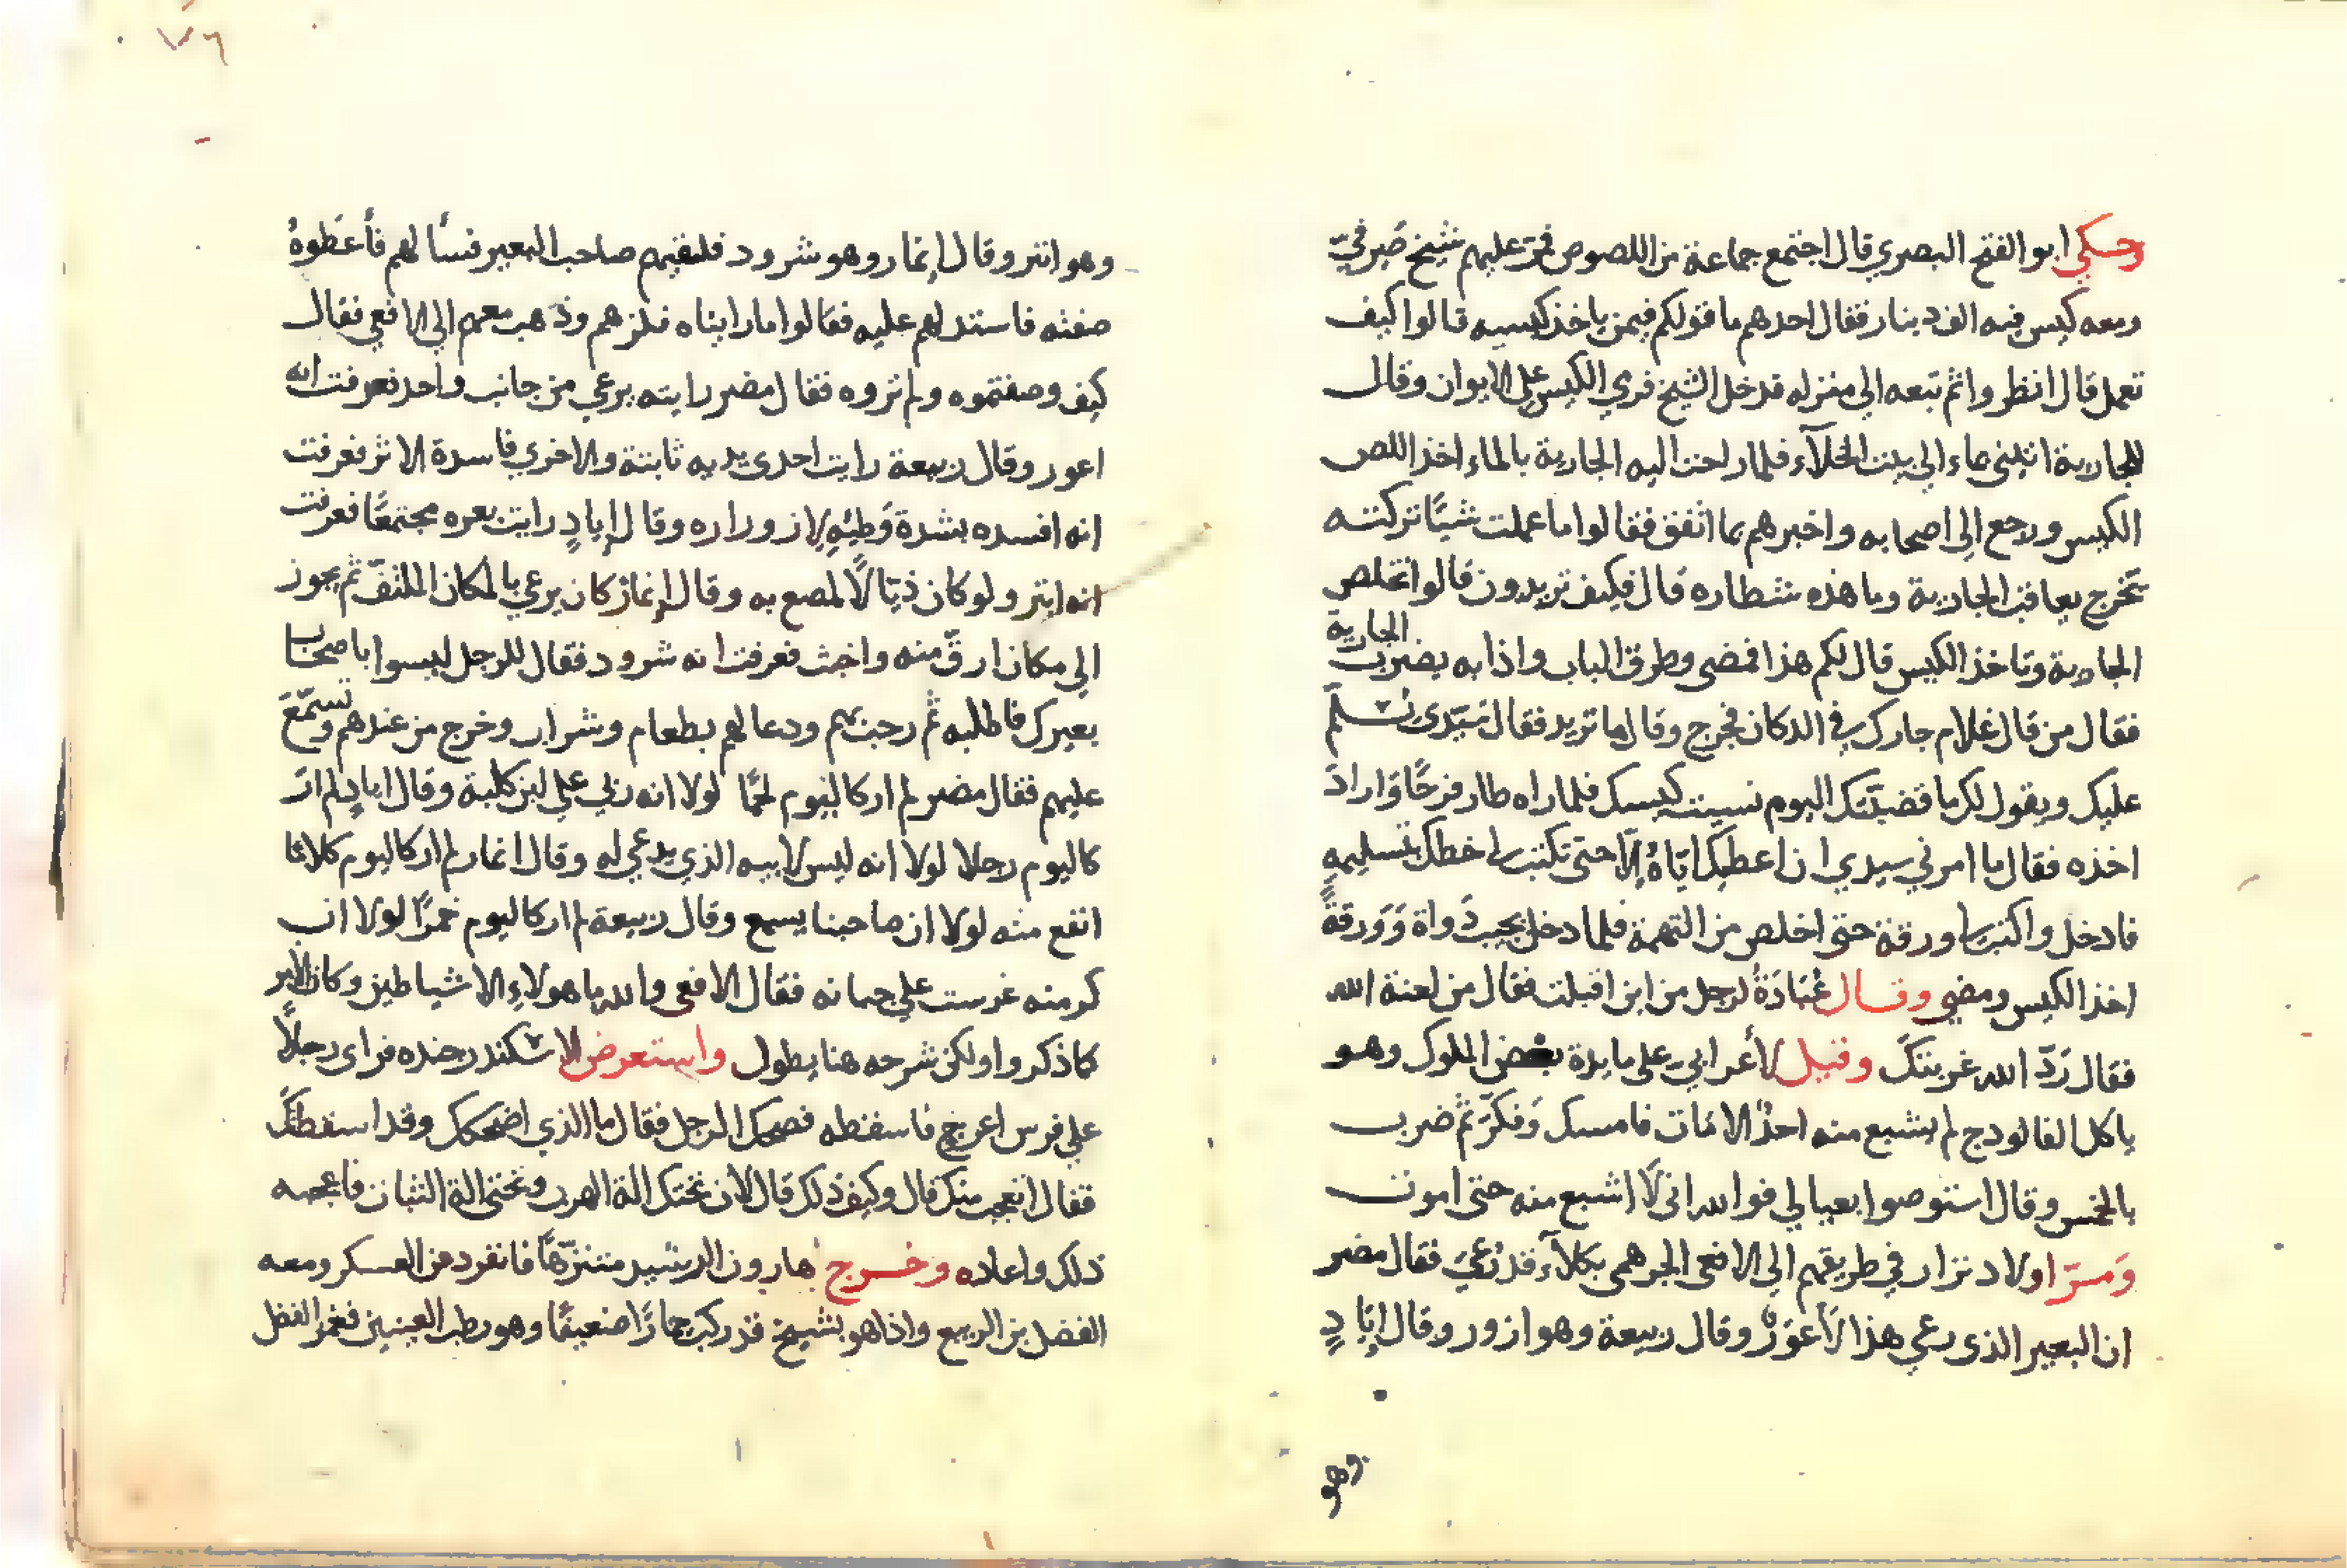 وحكي ابو الفتح البصري قال اجتمع جماعة من اللصوص فمر عليهم شيخ صيرفيّ
ومعه كيس فيه الف دينار فقال احدهم ما قولكم فيمن ياخذ كيسه قالوا كيف
تعمل قال انظروا ثم تبعه الى منزله فدخل الشيخ فرمي الكيس على الايوان وقال
للجارية اتيني بماء الي بيت الخلآء فلما راحت اليه الجارية بالماء اخذ اللص
الكيس ورجع الى اصحابه واخبرهم بما اتفق فقالوا ما عملت شيًا تركته
تخرج يعاقب الجارية وما هذه شطاره قال فكيف تريدون قالوا تخلص
الجارية وتاخذ الكيس قال لكم هذا فمضى وطرق الباب واذا به يضرب الجارية
فقال من قال غلام جارك في الدكان فخرج وقال ما تريد فقال سيّدى يسلّم
عليك ويقول لك ما قضيّتك اليوم نسيت كيسك فلما راه طار فرحًا واراد
اخذه فقال ما امرني سيدي ان اعطيك ايّاهُ إلّا حتى تكتب لي خطك بتسليمهِ
فادخل واكتب لي ورقة حتى اخلص من التهمة فلما دخل يجيب دَواة وَوَرقةً
اخذ الكيس ومضى وقال عُبَادَةُ لرجل من اين اقبلت فقال من لعنة الله
فقال رَدّ الله غربتكَ وقيل لأعرابي على مايدة بعض الملوك وهو
ياكل الفالودج لم يشبع منه احدٌ الا مَات فامسك وَفكّرَ ثم ضرب
بالخمس وقال استوصوا بعيالي فوالله اني لَا اشبع منه حتى اموت
وَمرّ اولاد نزار في طريقهم الي الافعى الجرهمي بكلآءٍ قد رُعيَ فقال مضر
ان البعير الذى رعي هذا لَأعوَرُ وقال ربيعة وهو ازور وقال إيَادٍ
وهو
٧٦
وهو ابتر وقال إنمار وهو شرود فلقيهم صاحب البعير فسأ لهم فأعطوهُ
صفته فاستدلهم عليه فقالوا ما رايناه فلزهم وذهب معهم الى الافعي فقال
كيف وصفتموه ولم تروه فقال مضر رايته يرعي من جانب واحد فعرفت انه
اعور وقال ربيعة رايت احدى يديه ثابتة والاخري فاسدة الاثر فعرفت
انه افسده بشدة وَطيِّهِ لازوراره وقال إيادٍ رايت بعره مجتمعًا فعرفت
انه ابتر ولو كان ذيّالًا لمصع به وقال إنمار كان يرعي بالمكان الملتفّ ثم يجوز
الي مكان ارقّ منه واخبث فعرفت انه شرود فقال للرجل ليسوا باصحاب
بعيرك فاطلبه ثم رحب بهم ودعا لهم بطعام وشراب وخرج من عندهم وتسمّعَ
عليهم فقال مضر لم ار كاليوم لحمًا لولا انه ربي على لبن كلبة وقال ايادٍ لم ارَ
كاليوم رجلا لولا انه ليس لابيه الذي يدعي له وقال انمار لم ار كاليوم كلاما
انفع منه لولا ان صاحبنا يسمع وقال ربيعة لم ار كاليوم خمرًا لولا ان
كرمته غرست على جبانه فقال الافعى والله ما هولاءِ الا شياطين وكان الامر
كما ذكروا ولكن شرحه هنا يطول واستعرض الاسكندر جنده فراى رجلًا
علي فرس اعرج فاسقطه فضحك الرجل فقال ما الذي اضحكك وقد اسقطتكَ
فقال اتعجب منك قال وكيف ذلك قال لان تحتك الة الهرب وتحتي الة الثبات فاعجبه
ذلك واعاده وخرج هارون الرشيد متنزّهًا فانفرد عن العسكر ومعه
الفضل بن الربيع واذا هو بشيخ قد ركب حمارًا ضعيفًا وهو رطب العينين فغمز الفضل